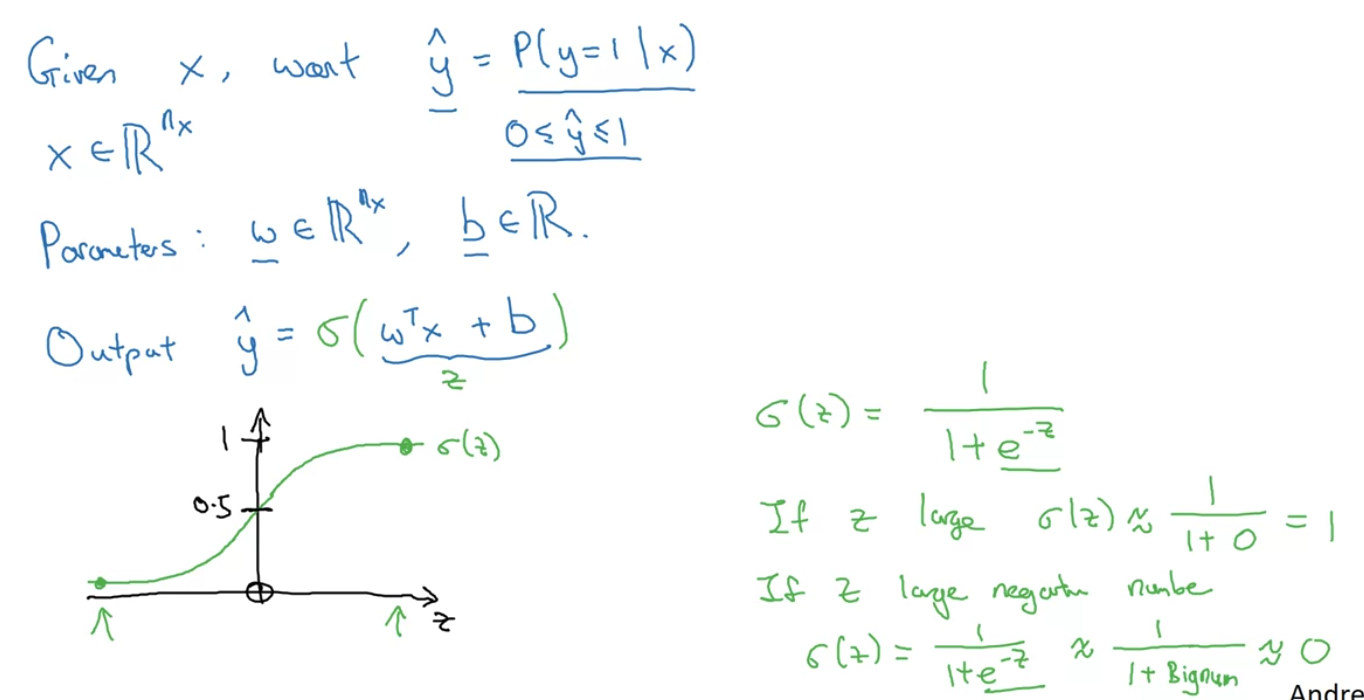 Given x, want ŷ = P(y=1|x)
x ∈ ℝⁿˣ 0 ≤ ŷ ≤ 1
Parameters: w ∈ ℝⁿˣ, b ∈ ℝ.
Output ŷ = σ(wᵀx + b)
z
1
σ(z)
0.5
z
σ(z) = 1/(1+e^(-z))
If z large σ(z) ≈ 1/(1+0) = 1
If z large negative number
σ(z) = 1/(1+e^(-z)) ≈ 1/(1+Bignum) ≈ 0
Andre